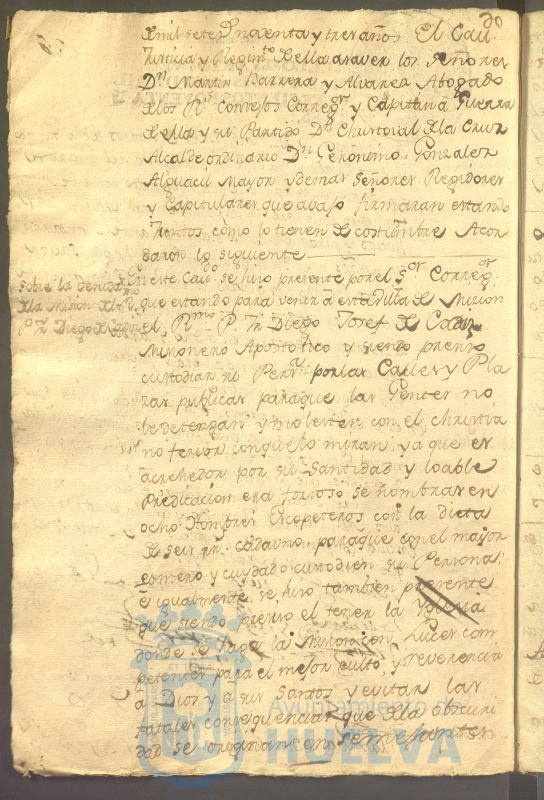 30
Xmil setes Noventa y tres años El Cav.
Justicia y Regim.to Xella asaver los señores
Dn Martin Barrera y Alvarez Abogado
Xlos Rs Consejos Correg.or y Capitan a Guerra
Xella y su Partido Dn Christoval Xla Cruz
Alcalde ordinario Dn Geronimo Gonzalez
Alguacil Mayor y demas señores Regidores
y Capitulares que avajo firmaran estando
Juntos como lo tienen de costumbre Acor
daron lo siguiente
Sobre la
Xla Mision Xl R.
P. Fr. Diego X
En este Cavdo se hizo presente por el Sor Correg.or
que estando para venir a esta Villa de Mision
el Rmo P. Fr Diego Josef de Cadiz
Misionero Apostolico y siendo preciso
custodiar su Persa por las Calles y Pla
zas publicas para que las Gentes no
le detengan y molesten con el christia
no fervor con que lo miran ya que es
acrehedor por su santidad y loable
Predicacion era forzoso se nombrasen
ocho Hombres Escopeteros con la dieta
de seis rr. cada uno para que con el mayor
esmero y cuydado custodien su Persona;
e igualmente se hizo tambien presente
que siendo preciso el tener la Yglesia
donde se haga la Mision con Luces com
petentes para el mejor culto, y reverencia
a Dios y a sus Santos y evitar las
fatales consequencias que Xla obscuri
dad se originan en semejantes
ET TERRÆ
Ayuntamiento de
HUELVA